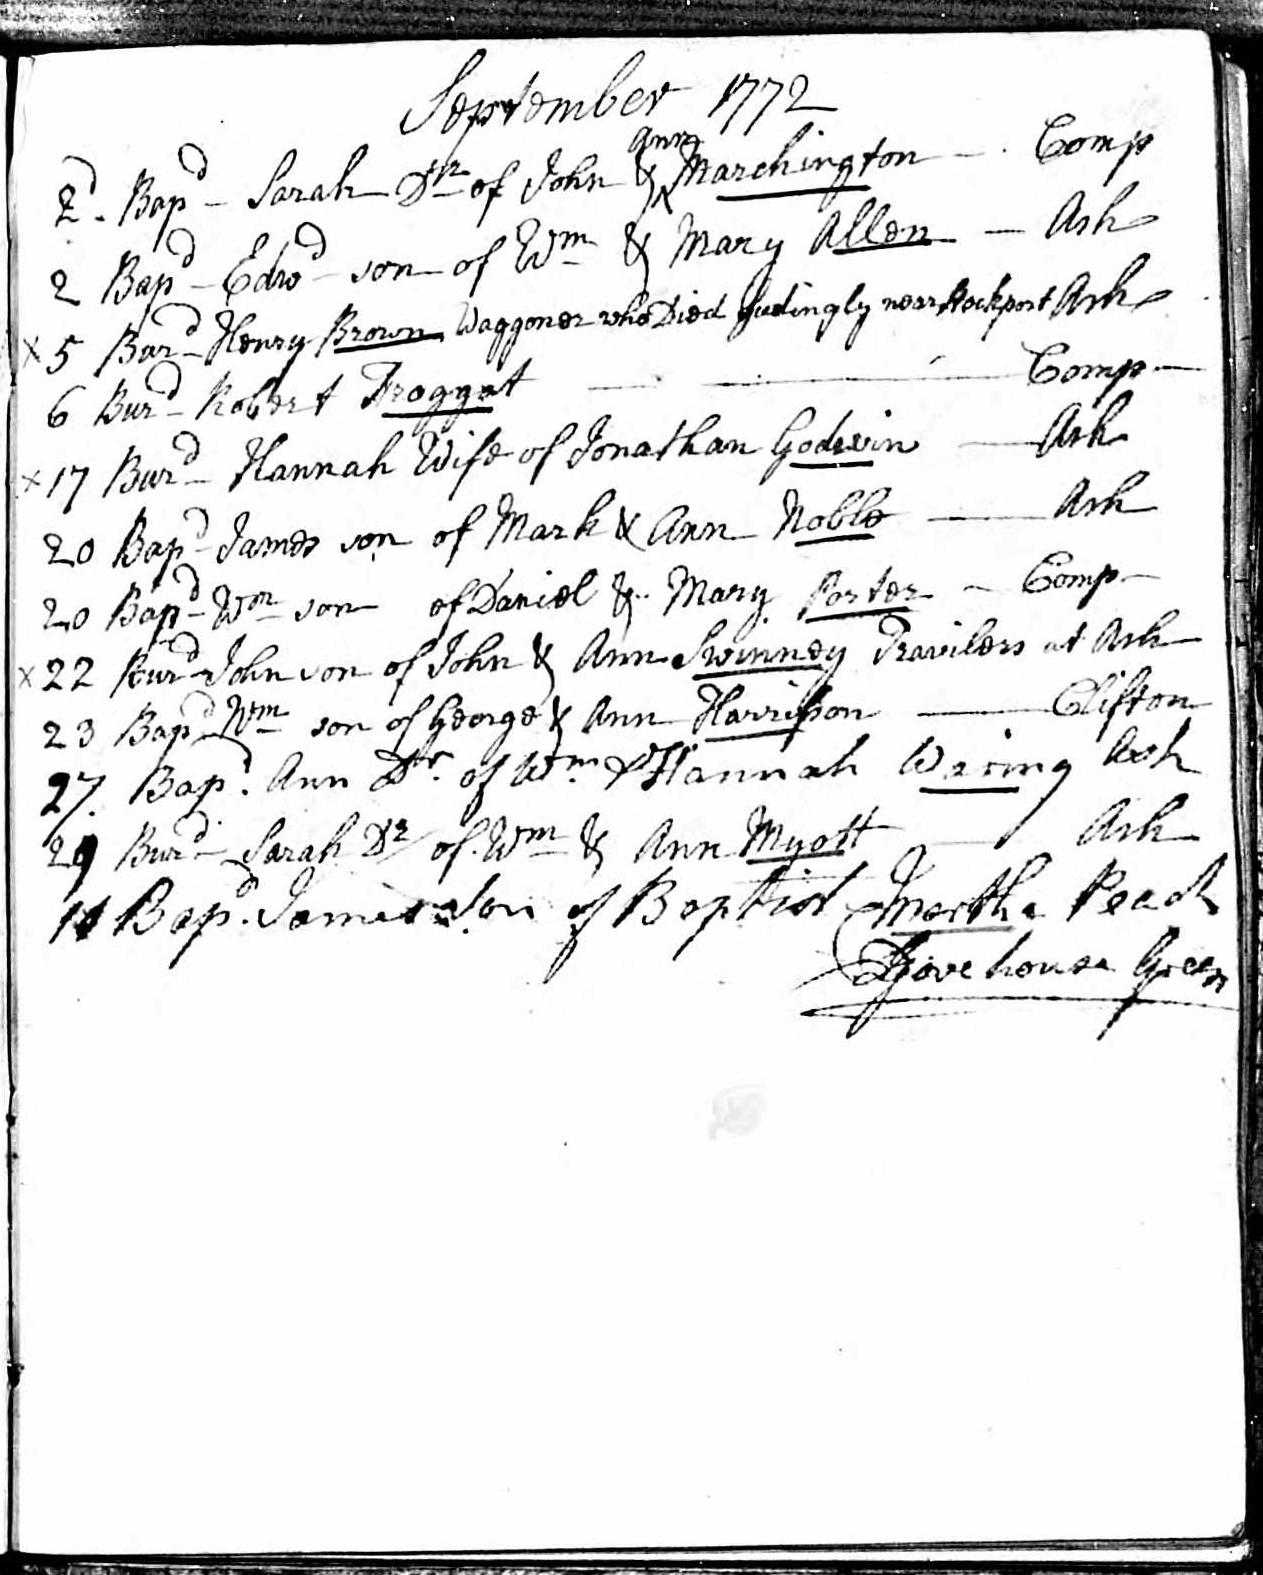 September 1772
2d. Bapd - Sarah Dr of John & Ann Marchington - Comp
2 Bapd - Edwd - son of Wm & Mary Allen - Ash
x 5 Burd - Henry Brown Waggoner who Died Sudingly near Ash
6 Burd - Robert Froggat - Comp
x 17 Burd - Hannah Wife of Jonathan Godwin - Ash
20 Bapd - James son of Mark & Ann Noble - Ash
20 Bapd - Wm son of Daniel & Mary Porter - Comp
x 22 Burd - John son of John & Ann Swinney Travilers at Ash
23 Bapd - Wm son of George & Ann Harrisson - Clifton
27. Bapd. Ann Dr. of Wm & Hannah Waring Ash
29 Burd - Sarah Dr of Wm & Ann Myott - Ash
Bapd. James Son of Baptist & Martha Peach
Dovehouse Green